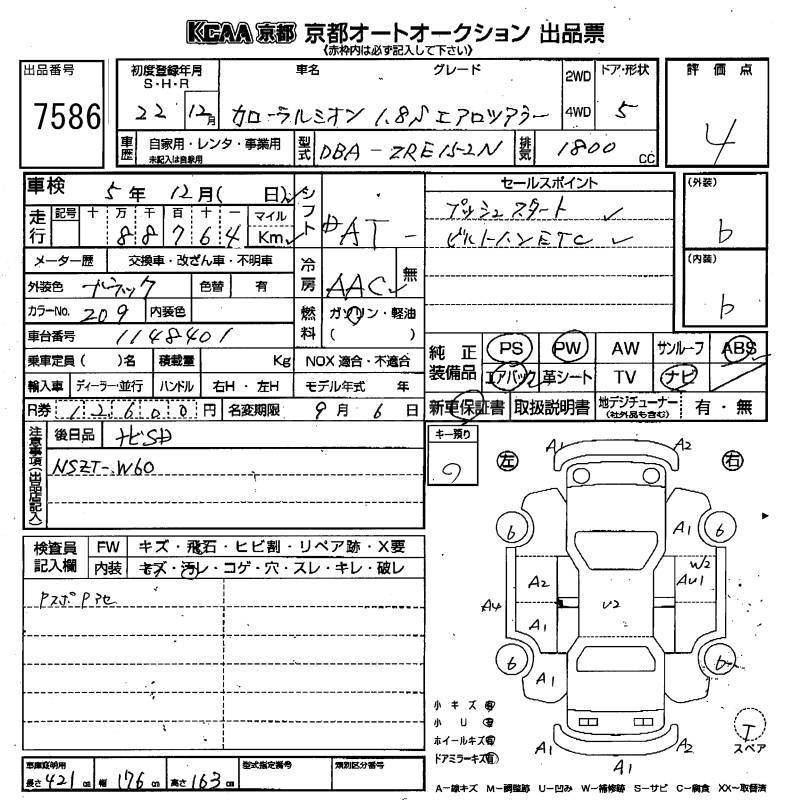 KCAA 京都 京都オートオークション 出品票
《赤枠内は必ず記入して下さい》
出品番号
7586
初度登録年月
S・H・R
22 12月
車名 グレード
カローラルミオン 1.8S エアロツアラー
2WD
4WD
ドア・形状
5
評価点
4
車歴
自家用・レンタ・事業用
未記入は自家用
型式
DBA-ZRE152N
排気
1800 CC
車検 5年 12月( 日)
走行
記号 十 万 千 百 十 一
88764
マイル
Km
シフト
AT
メーター歴 交換車・改ざん車・不明車
外装色 ブラック 色替 有
カラーNo. 209 内装色
冷房
AAC
無
燃料
ガソリン・軽油
( )
車台番号 1148401
乗車定員( )名 積載量 Kg NOX 適合・不適合
輸入車 ディーラー・並行 ハンドル 右H・左H モデル年式 年
R券 12600円 名変期限 9月 6日
セールスポイント
プッシュスタート
ビルトインETC
(外装)
b
(内装)
b
純正装備品
PS PW AW サンルーフ ABS
エアバック 革シート TV ナビ
新車保証書 取扱説明書 地デジチューナー(社外品も含む) 有・無
注意事項(出品店記入)
後日品 ナビSD
NSZT-W60
キー預り
左 右
検査員記入欄
FW キズ・飛石・ヒビ割・リペア跡・X要
内装 キズ・汚レ・コゲ・穴・スレ・キレ・破レ
A1 A2
6 A1 6
A2 W2
AU1
A4 U2 A1
A1
6 A1 6
A1 A2
小キズ 有
小U 有
ホイールキズ 有
ドアミラーキズ 有
T
スペア
車庫証明用
長さ 421cm 幅 176cm 高さ 163cm
型式指定番号 類別区分番号
A-線キズ M-調整跡 U-凹み W-補修跡 S-サビ C-腐食 XX-取替済